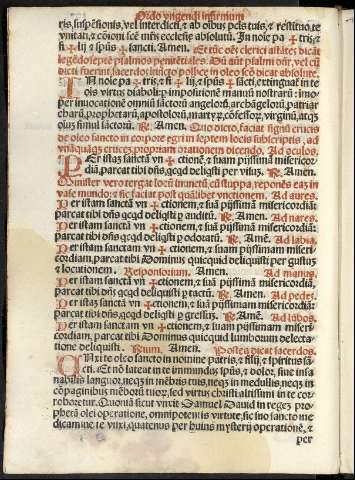 Ordo vngendi infirmum
tis, suspensionis, vel interdicti, & ab oibus pctis tuis, & restituo te
vnitati, & cõioni scẽ mris ecclesię absolutũ. In noie pa ✠ tris, &
fi ✠ lij & spũs ✠ sancti. Amen. Et tũc oẽs clerici astãtes dicãt
legẽdo septẽ psalmos penitẽtiales. Dũ aũt psalmi dñr, vel cũ
dicti fuerint, sacerdos intĩcto pollice in oleo scõ dicat absolute.
IN noie pa ✠ tris, & fi ✠ lij, & spũs ✠ sãcti, extinguat̃ in te
ois virtus diaboli: p impositionẽ manuũ nostrarũ: imo
per inuocationẽ omniũ sãctorũ angelorũ, archãgelorũ, patriar
charũ, prophetarũ, apostolorũ, martyrũ, cõfessorũ, virginũ, atq;
oiuz simul sãctorũ. R. Amen. Quo dicto, faciat signũ crucis
de oleo sancto in corpore egri in septem locis subscriptis, ad
vnãquãq; crucẽs, propriam orationẽm dicendo. Ad oculos.
PEr istam sanctã vn ✠ ctionẽ, & suam pijssimã misericor-
diã, parcat tibi dñs, qcqd deliqsti per visuz. R. Amen.
Minister vero tergat locũ inunctũ cũ stuppa, reponẽs eas in
vase mundo: & sic faciat post quãlibet vnctionem. Ad aures.
Per istam sanctã vn ✠ ctionem, & suã pijssimã misericordiã:
parcat tibi dñs, qcqd deliqsti p auditũ. R. Amen. Ad nares.
Per istam sanctam vn ✠ ctionem, & suã pijssimã misericordiã:
parcat tibi dñs qcqd deliqsti p odoratũ. R. Amẽ. Ad labia.
Per istam sanctam vn ✠ ctionem, & sua pijssimam miseri-
cordiam, parcat tibi Dominus quicquid deliquisti per gustuz
& locutionem. Responsorium. Amen. Ad manus.
Per istaz sanctam vn ✠ ctionem, & suã pijssimam misericordiã:
parcat tibi dñs, qcqd deliqsti p tactũ. R. Amen. Ad pedes.
Per istaz sanctã vn ✠ ctionem, & suã pijssimam misericordiã:
parcat tibi dñs, qcqd deliqsti p gressus. R. Amẽ. Ad lũbos.
Per istam sanctam vn ✠ ctionem, & suã pijssimam miseri-
cordiam, parcat tibi Dominus quicquid lumborum delecta-
tione deliquisti. Rium. Amen. Postea dicat sacerdos.
UNxi te oleo sancto in nomine patris, & filij, & spiritus sã-
cti. Et nõ lateat in te immundus spũs, & dolor, siue insa
nabilis languor, neq; in mẽbris tuis, neq; in medullis, neq; in
cõpaginibus mẽborũ tuor;, sed virtus christi altissimi in te cor-
roboretur. Quoniã sicut vnxit Samuel Dauid in regez pro-
phetã: olei operatione, omnipotentis virtute, sic isto sancto me
dicamine te vnxi, quatenus per huius mysterij operationẽ, &
per